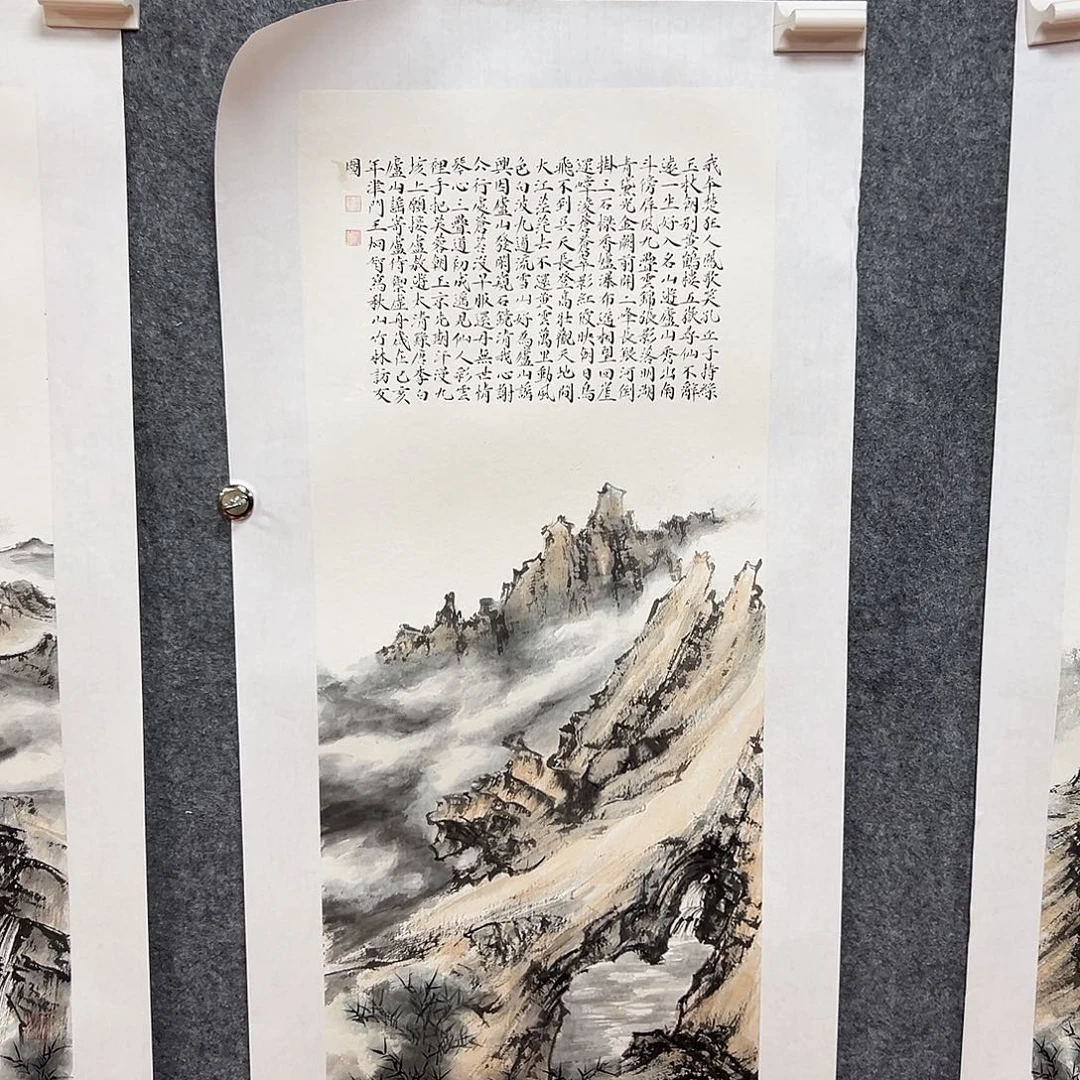 我本楚狂人鳳歌笑孔丘手持綠
玉杖朝別黃鶴樓五嶽尋仙不辭
遠一生好入名山遊廬山秀出南
斗傍屏風九疊雲錦張影落明湖
青黛光金闕前開二峰長銀河倒
掛三石樑香爐瀑布遙相望回崖
遝嶂淩蒼蒼翠影紅霞映朝日鳥
飛不到吳天長登高壯觀天地間
大江茫茫去不還黃雲萬里動風
色白波九道流雪山好為廬山謠
興因廬山發閑窺石鏡清我心謝
公行處蒼苔沒早服還丹無世情
琴心三疊道初成遙見仙人彩雲
裡手把芙蓉朝玉京先期汗漫九
垓上願接盧敖遊太清錄唐李白
廬山謠寄盧侍禦虛舟歲在己亥
年津門王炯智寫秋山竹林訪友
圖